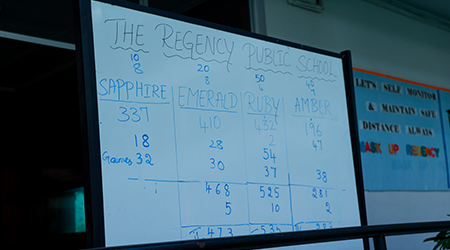 THE REGENCY PUBLIC SCHOOL
10 20 50
8 8
SAPPHIRE EMERALD RUBY AMBER
337 410 432 196
18 28 2 47
54
Games 32 30 37 38
468 525 281
5 10 2
II 473 535
LET'S SELF MONITOR
& MAINTAIN SAFE
DISTANCE ALWAYS
MASK UP REGENCY